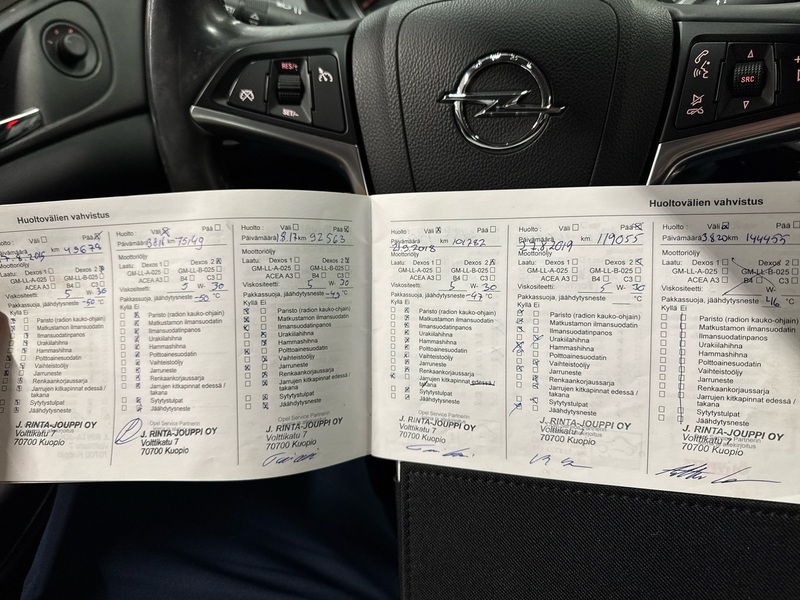 RES/+
SET/-
SRC
Huoltovälien vahvistus
Huolto: Väli Pää
km 49679
Moottoriöljy
Laatu: Dexos 1 Dexos 2
GM-LL-A-025 GM-LL-B-025
ACEA A3 B4 C3
Viskositeetti: 5 W- 30
Pakkassuoja, jäähdytysneste -50 °C
Kyllä Ei
Huolto: Väli Pää
Päivämäärä km 75149
Moottoriöljy
Laatu: Dexos 1 Dexos 2
GM-LL-A-025 GM-LL-B-025
ACEA A3 B4 C3
Viskositeetti: 5 W- 30
Pakkassuoja, jäähdytysneste -50 °C
Kyllä Ei
Paristo (radion kauko-ohjain)
Matkustamon ilmansuodatin
Ilmansuodatinpanos
Urakiilahihna
Hammashihna
Polttoainesuodatin
Vaihteistoöljy
Jarruneste
Renkaankorjaussarja
Jarrujen kitkapinnat edessä /
takana
Sytytystulpat
Jäähdytysneste
J. RINTA-JOUPPI OY
Volttikatu 7
70700 Kuopio
Huolto: Väli Pää
Päivämäärä km 92563
Moottoriöljy
Laatu: Dexos 1 Dexos 2
GM-LL-A-025 GM-LL-B-025
ACEA A3 B4 C3
Viskositeetti: 5 W- 30
Pakkassuoja, jäähdytysneste °C
Kyllä Ei
Paristo (radion kauko-ohjain)
Matkustamon ilmansuodatin
Ilmansuodatinpanos
Urakiilahihna
Hammashihna
Polttoainesuodatin
Vaihteistoöljy
Jarruneste
Renkaankorjaussarja
Jarrujen kitkapinnat edessä /
takana
Sytytystulpat
Jäähdytysneste
Opel Service Partnerin
J. RINTA-JOUPPI OY
Volttikatu 7
70700 Kuopio
Huoltovälien vahvistus
Huolto: Väli Pää
Päivämäärä 21.9.2018 km 101282
Moottoriöljy
Laatu: Dexos 1 Dexos 2
GM-LL-A-025 GM-LL-B-025
ACEA A3 B4 C3
Viskositeetti: 5 W- 30
Pakkassuoja, jäähdytysneste -47 °C
Kyllä Ei
Paristo (radion kauko-ohjain)
Matkustamon ilmansuodatin
Ilmansuodatinpanos
Urakiilahihna
Hammashihna
Polttoainesuodatin
Vaihteistoöljy
Jarruneste
Renkaankorjaussarja
Jarrujen kitkapinnat edessä /
takana
Sytytystulpat
Jäähdytysneste
Opel Service Partnerin
J. RINTA-JOUPPI OY
Volttikatu 7
70700 Kuopio
Huolto: Väli Pää
Päivämäärä 27.8.2019 km 119055
Moottoriöljy
Laatu: Dexos 1 Dexos 2
GM-LL-A-025 GM-LL-B-025
ACEA A3 B4 C3
Viskositeetti: 5 W- 30
Pakkassuoja, jäähdytysneste °C
Kyllä Ei
Paristo (radion kauko-ohjain)
Matkustamon ilmansuodatin
Ilmansuodatinpanos
Urakiilahihna
Hammashihna
Polttoainesuodatin
Vaihteistoöljy
Jarruneste
Renkaankorjaussarja
Jarrujen kitkapinnat edessä /
takana
Sytytystulpat
Jäähdytysneste
J. RINTA-JOUPPI OY
Volttikatu 7
70700 Kuopio
Huolto: Väli Pää
Päivämäärä km 144455
Moottoriöljy
Laatu: Dexos 1 Dexos 2
GM-LL-A-025 GM-LL-B-025
ACEA A3 B4 C3
Viskositeetti: W-
Pakkassuoja, jäähdytysneste °C
Kyllä Ei
Paristo (radion kauko-ohjain)
Matkustamon ilmansuodatin
Ilmansuodatinpanos
Urakiilahihna
Hammashihna
Polttoainesuodatin
Vaihteistoöljy
Jarruneste
Renkaankorjaussarja
Jarrujen kitkapinnat edessä /
takana
Sytytystulpat
Jäähdytysneste
J. RINTA-JOUPPI OY
Volttikatu 7
70700 Kuopio